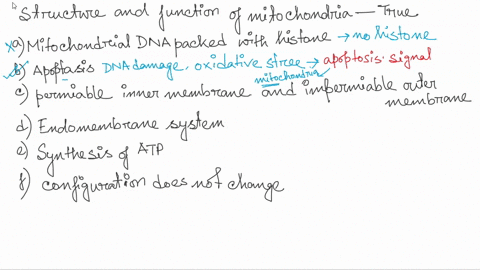 Structure and function of mitochondria — True
a) Mitochondrial DNA packed with histone → no histone
b) Apoptasis DNA damage, oxidative stree → apoptosis signal
mitochondria
c) permiable inner membrane and impermiable outer
membrane
d) Endomembrane system
e) Synthesis of ATP
f) configuration does not change